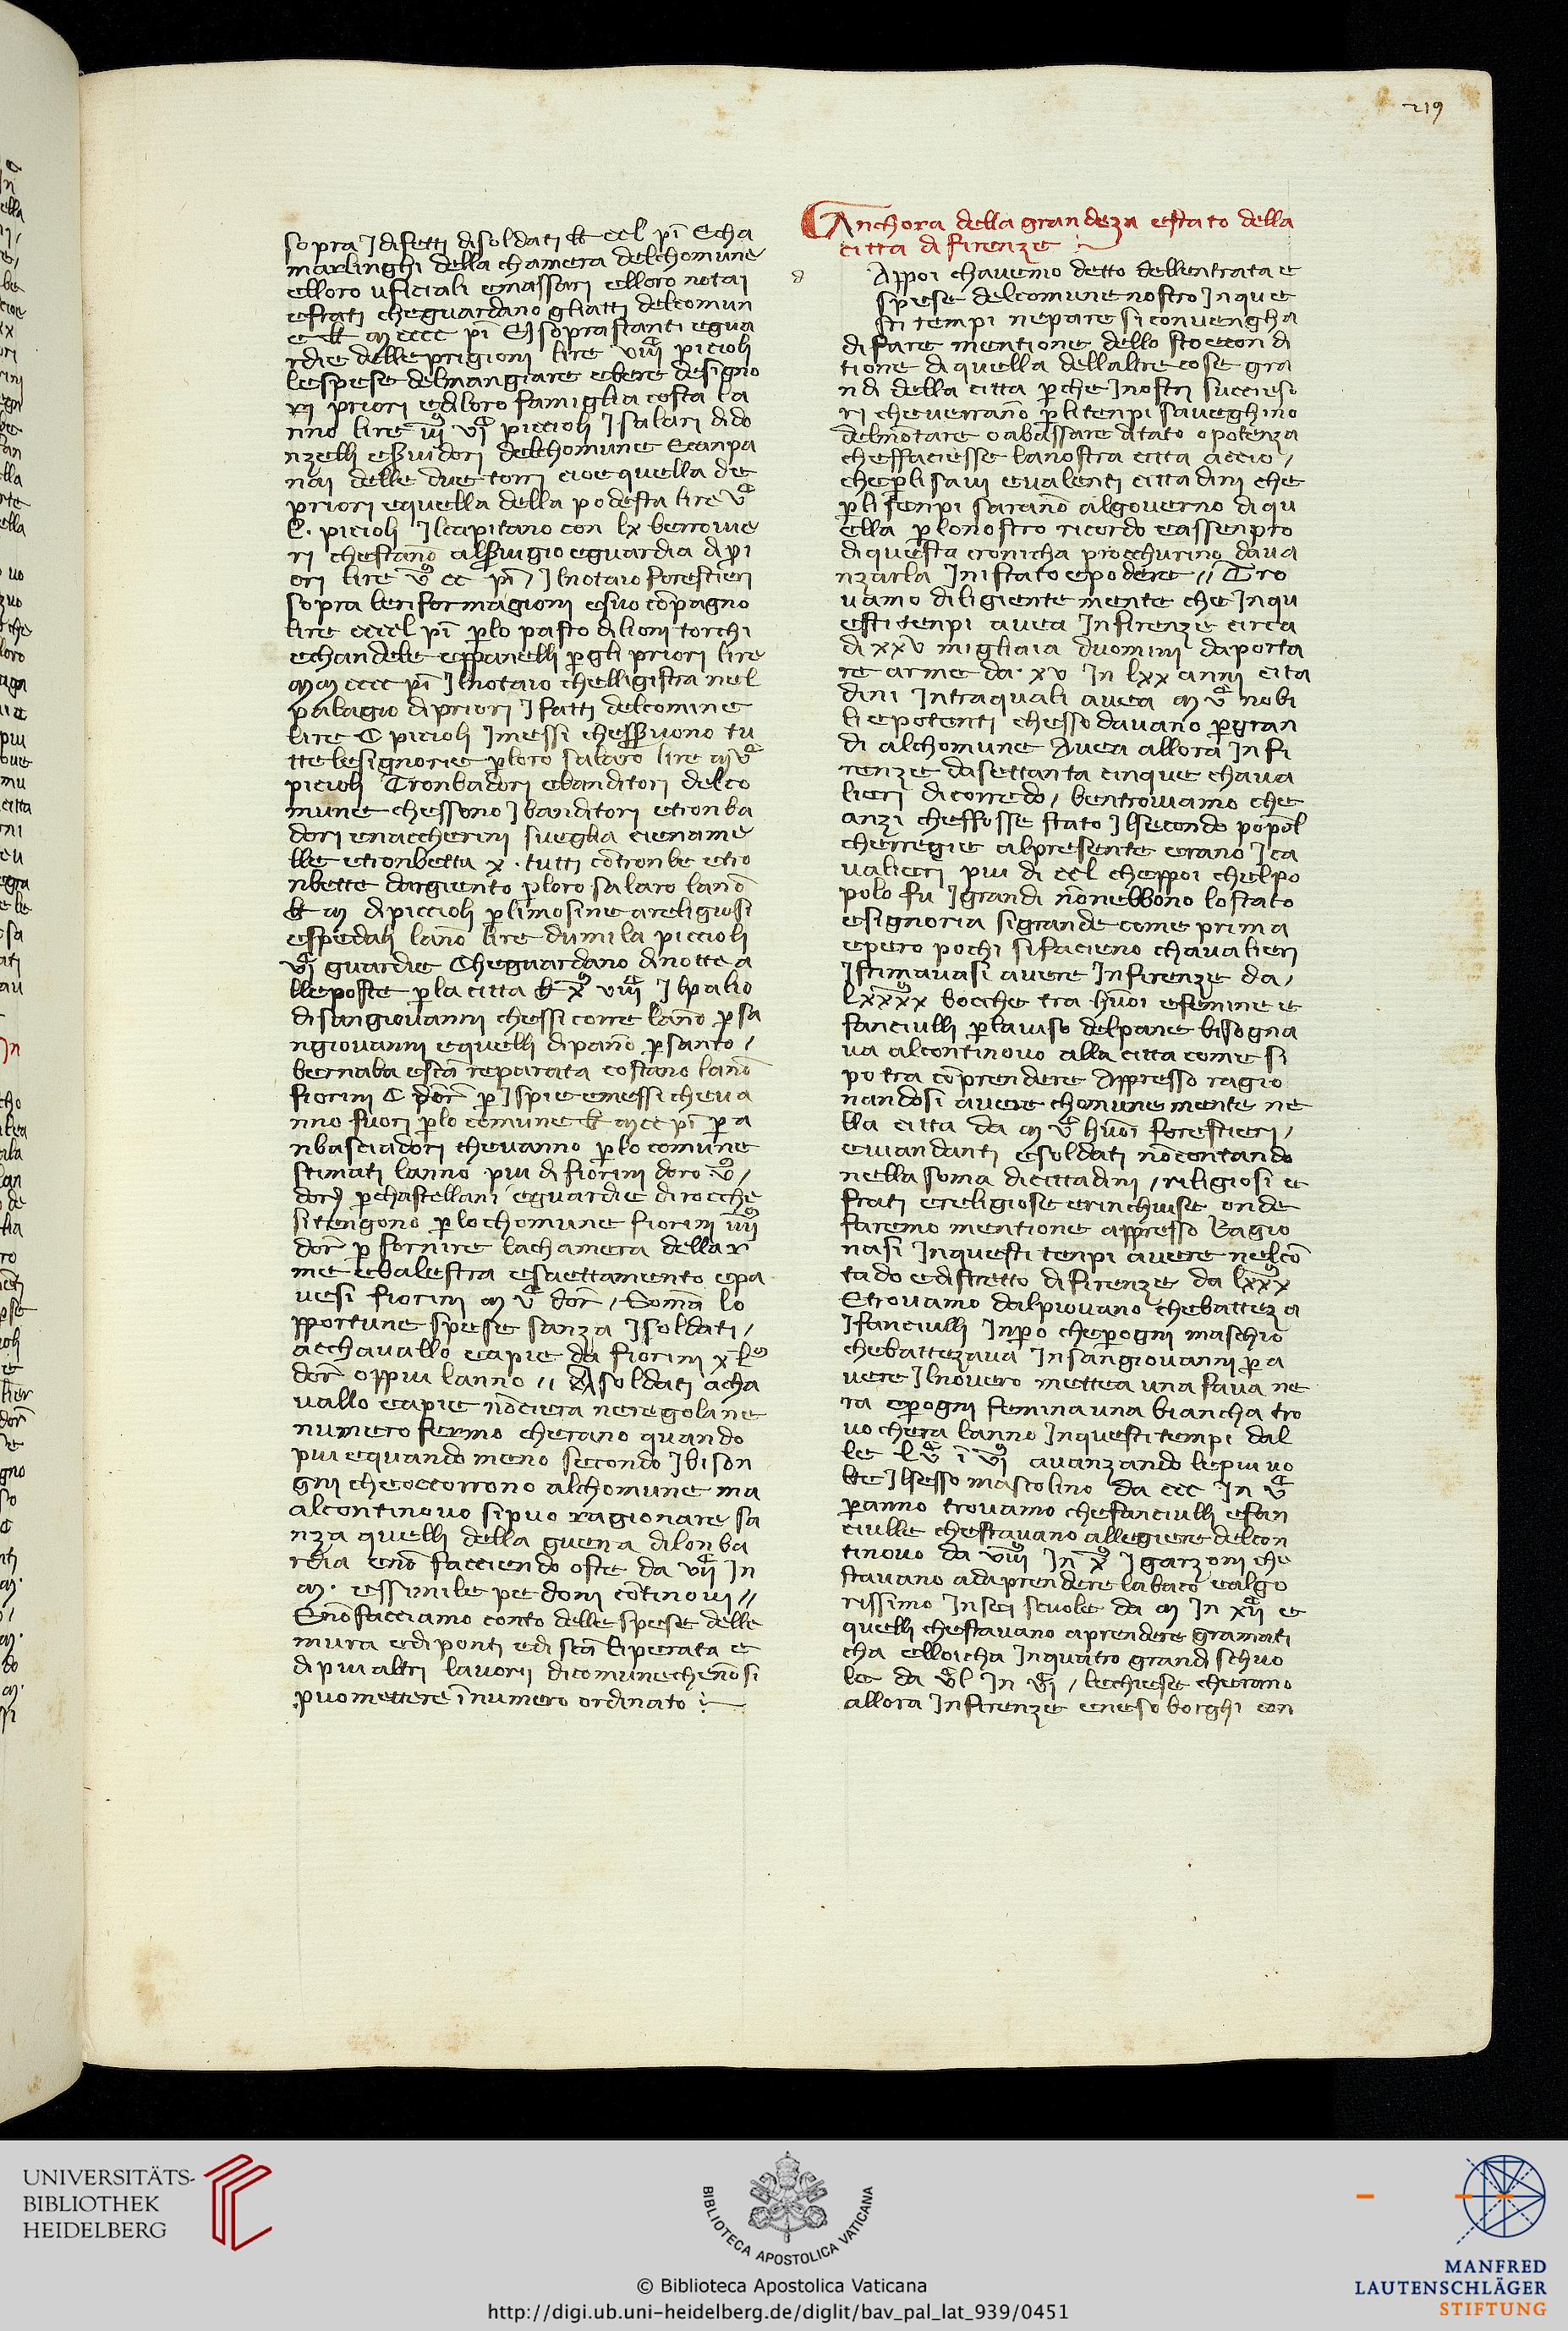 219
sopra j difetti di soldati lb ccl pī Echa
marlinghi della chamera delchomune
elloro uficiali emassari elloro notai
efrati cheguardano gliatti delcomun
e lb m cccc pī Ej soprastanti egua
rdie delleprigioni lire viij picioli
lespese delmangiare ebere designo
rij priori ediloro famiglia costa la
nno lire iij vi piccioli J salari dido
nzelli es̄uidori delchomune Ecanpa
naj delle due torri cioe quella de
priori equella della podesta lire v
C. picioli Jlcapitano con lx berrouie
ri chestano als̄uigio eguardia dipi
ori lire v cc pī / Jlnotaio forestieri
sopra leriformagioni esuo cōpagno
lire cccl pī p̄lo pasto dilioni torchi
echandele eppanelli p̄gli priori lire
mm cccc pī Jlnotaio chelligistra nel
palagio dipriori J fatti delcomine
lire C picioli Jmessi chess̄uono tu
ttelesignorie p̄loro salaro lire m v
picioli Tronbadori ebanditori delco
mune chessono J banditori etronba
dori enaccherini sueglia ciename
lle etronbetta x . tutti cōtronbe etro
nbette dargiento p̄loro salaro lanō
lb m di piccioli p̄limosine areligiosi
espedali lanō lire dumila piccioli
vi guardie Cheguardano dinotte a
lleposte p̄la citta lb x viij Jlpalio
disangiouanni chessi corre lanō p̄sa
ngiouanni equelli dipano p̄santo /
bernaba escā reparata costano lanō
fiorini C dor̄ p̄ J spie emessi cheua
nno fuori p̄lo comune lb mcc pī p̄ a
nbasciadori cheuanno p̄lo comune
stimati lanno piu di fiorini doro v /
doro p̄chastellani eguardie dirocche
sitengono p̄lochomune fiorini iiij
dor̄ p̄ fornire lachamera dellar
me ebalestra esaettamento epa
uesi fiorini m v dor̄ / Somā lo
pportune spese sanza J soldati /
acchauallo eapie da fiorini xl
dor̄ oppiu lanno // Asoldati acha
uallo eapie nōciera neregolane
numero fermo cherano quando
piu equando meno secondo J bison
gni cheoccorrono alchomune ma
alcontinouo sipuo ragionare sa
nza quelli della guerra dilonba
rdia enō facciendo oste da vij in
m . essimile pedoni cōtinoui //
Enōfacciamo conto delle spese delle
mura ediponti edi scā Liperata e
dipiu altri lauorij dicomunechenōsi
puomettere ī numero ordinato
Anchora della grandeza estato della
citta di firenze
a
Appoi chauemo detto dellentrata e
spese delcomunenostro Jnque
sti tempi nepare siconuengha
di fare mentione dello stoecondi
tione di quella dellaltre cose gra
ndi della citta p̄che Jnostri succieso
ri cheuerrano p̄litenpi saueghino
delmōtare oabassare distato opotenza
cheffaciesse lanostra citta accio /
chep̄lisaui eualenti cittadini che
p̄litenpi sarano algouerno diqu
ella p̄lonostro ricordo eassenpro
diquesta cronicha procchurino daua
nzarla Jnistato epodere // Tro
uamo diligiente mente che Jnqu
esti tenpi auea Jnfirenze circa
di xxv migliaia duomini daporta
re arme da . xv in lxx anni cita
dini Jntraquali auea m v nobi
li epotenti chessodauano p̄gran
di alchomune Auea allora Jnfi
renze dasettanta cinque chaua
lieri dicorredo / bentrouiamo che
anzi cheffosse stato Jlsecondo popol
cherregie alpresente erano J ca
ualieri piu di ccl cheppoi chelpo
polo fu Jgrandi nōnebbono lostato
esignoria sigrande come prima
epero pochi sifacieno chaualieri
Jstimauasi auere Jnfirenze da /
lxxxx bocche tra huōi efemine e
fanciulli p̄lauiso delpane bisogna
ua alcontinouo alla citta come si
potra cōprendere Appresso ragio
nandosi auere chomunemente ne
lla citta da m v huōi forestieri /
euiandanti esoldati nōcontando
nella soma dicittadini / riligiosi e
frati ereligiose erinchiuse onde
faremo mentione appresso Ragio
nasi Jnquesti tenpi auere nelcō
tado edistretto difirenze da lxxx
Etrouamo dalpiouano chebatteza
Jfanciulli Jnp̄o chep̄ogni maschio
chebattezaua Jnsangiouanni p̄ a
uere Jlnouero mettea una faua ne
ra ep̄ogni femina una biancha tro
uo chera lanno Jnquesti tempi dal
le lv ī vi auanzando lepiu uo
lte Jlsesso mascolino da ccc in v
p̄anno trouamo chefanciulli efan
ciulle chestauano alleggere delcon
tinouo da viij in x J garzoni che
stauano adaprendere labaco ealgo
rissimo Jnsei scuole da m in xij e
quelli chestauano aprendere gramati
cha elloicha Jnquatro grandi schuo
le da vl in vi / lechiese cherano
allora Jnfirenze eneso borghi con
UNIVERSITÄTS-
BIBLIOTHEK
HEIDELBERG
BIBLIOTECA APOSTOLICA VATICANA
© Biblioteca Apostolica Vaticana
http://digi.ub.uni-heidelberg.de/diglit/bav_pal_lat_939/0451
MANFRED
LAUTENSCHLÄGER
STIFTUNG